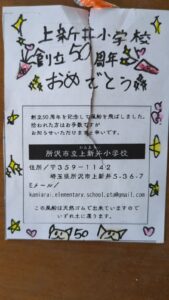 上新井小学校
創立50周年
おめでとう
創立50周年を記念して風船を飛ばしました。
拾われた方はお手数ですが
お知らせいただけますと幸いです。
所沢市立上新井小学校
住所/〒359-1142
埼玉県所沢市上新井5-36-7
Eメール/
kamiarai.elementary.school.pta@gmail.com
この風船は天然ゴムで出来ていますので
いずれ土に還ります。
50